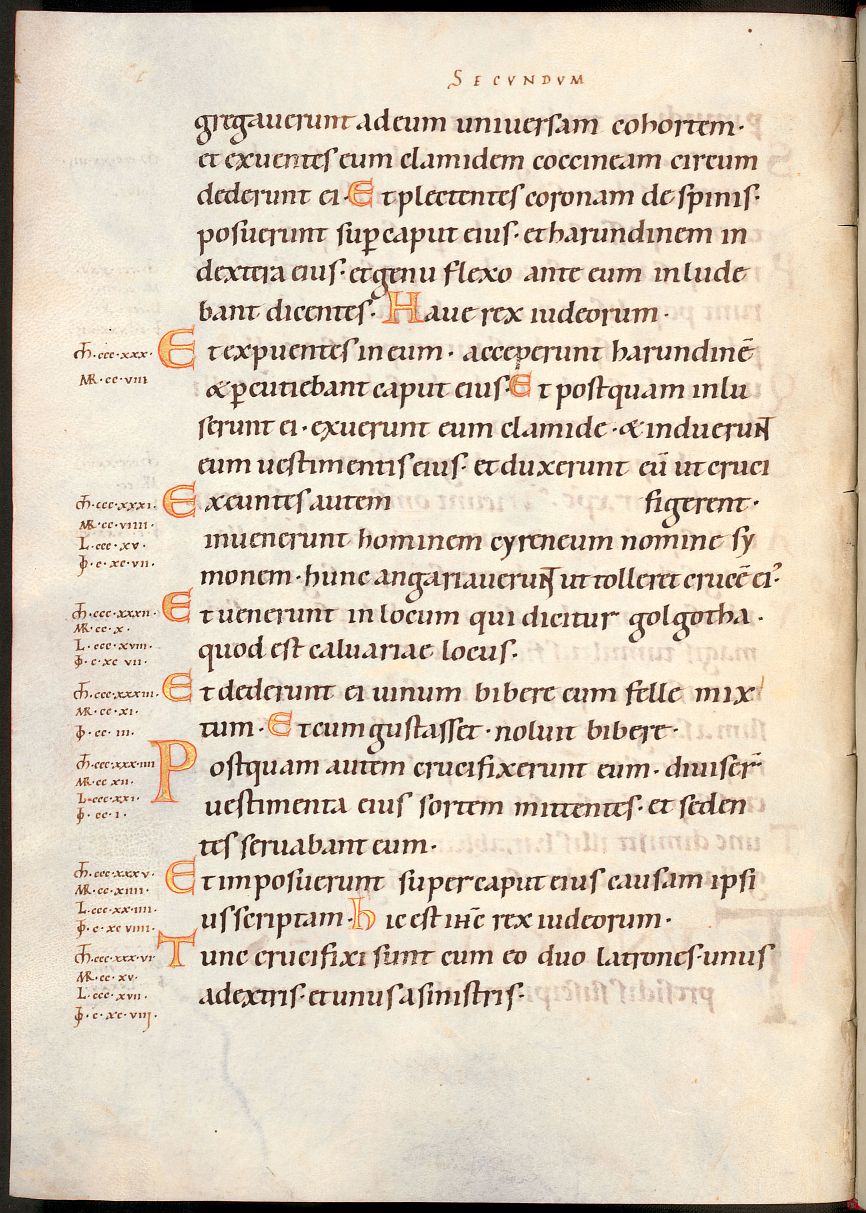 SECVNDVM
gregauerunt ad eum uniuersam cohortem·
et exuentes eum clamidem coccineam circum
dederunt ei· Et plectentes coronam de spinis·
posuerunt sup̱ caput eius· et harundinem in
dextera eius· et genu flexo ante eum inlude
bant dicentes· Haue rex iudeorum·
Et expuentes in eum· acceperunt harundinē
& p̱cutiebant caput eius· Et postquam inlu
serunt ei· exuerunt eum clamide· & induerunt
eum uestimentis eius· et duxerunt eū ut cruci
figerent·
Exeuntes autem
inuenerunt hominem cyreneum nomine sy
monem· hunc angariauerunt ut tolleret crucē ei᾿
Et uenerunt in locum qui dicitur golgotha·
quod est caluariae locus·
Et dederunt ei uinum bibere cum felle mix
tum· Et cum gustasset· noluit bibere·
Postquam autem crucifixerunt eum· diuiser̄
uestimenta eius sortem mittentes· et seden
tes seruabant eum·
Et imposuerunt super caput eius causam ipsi
us scriptam· hic est ihc̄ rex iudeorum·
Tunc crucifixi sunt cum eo duo latrones· unus
a dextris· et unus a sinistris·
m̄· ccc·xxx·
MR· cc·viii
m̄· ccc·xxxi·
MR· cc·viiii·
L· ccc·xv·
ⱷ· c·xc·vii·
m̄· ccc·xxxii·
MR· cc·x·
L· ccc·xviii·
ⱷ· c·xc·vii·
m̄· ccc·xxxiii·
MR· cc·xi·
ⱷ· cc·iii·
m̄· ccc·xxx·iiii
MR· cc·xii·
L· ccc·xxi·
ⱷ· cc·i·
m̄· ccc·xxxv·
MR· cc·xiiii·
L· ccc·xx·iiii·
ⱷ· c·xc·viiii·
m̄· ccc·xxx·vi·
MR· cc·xv·
L· ccc·xvii·
ⱷ· c·xc·viii·